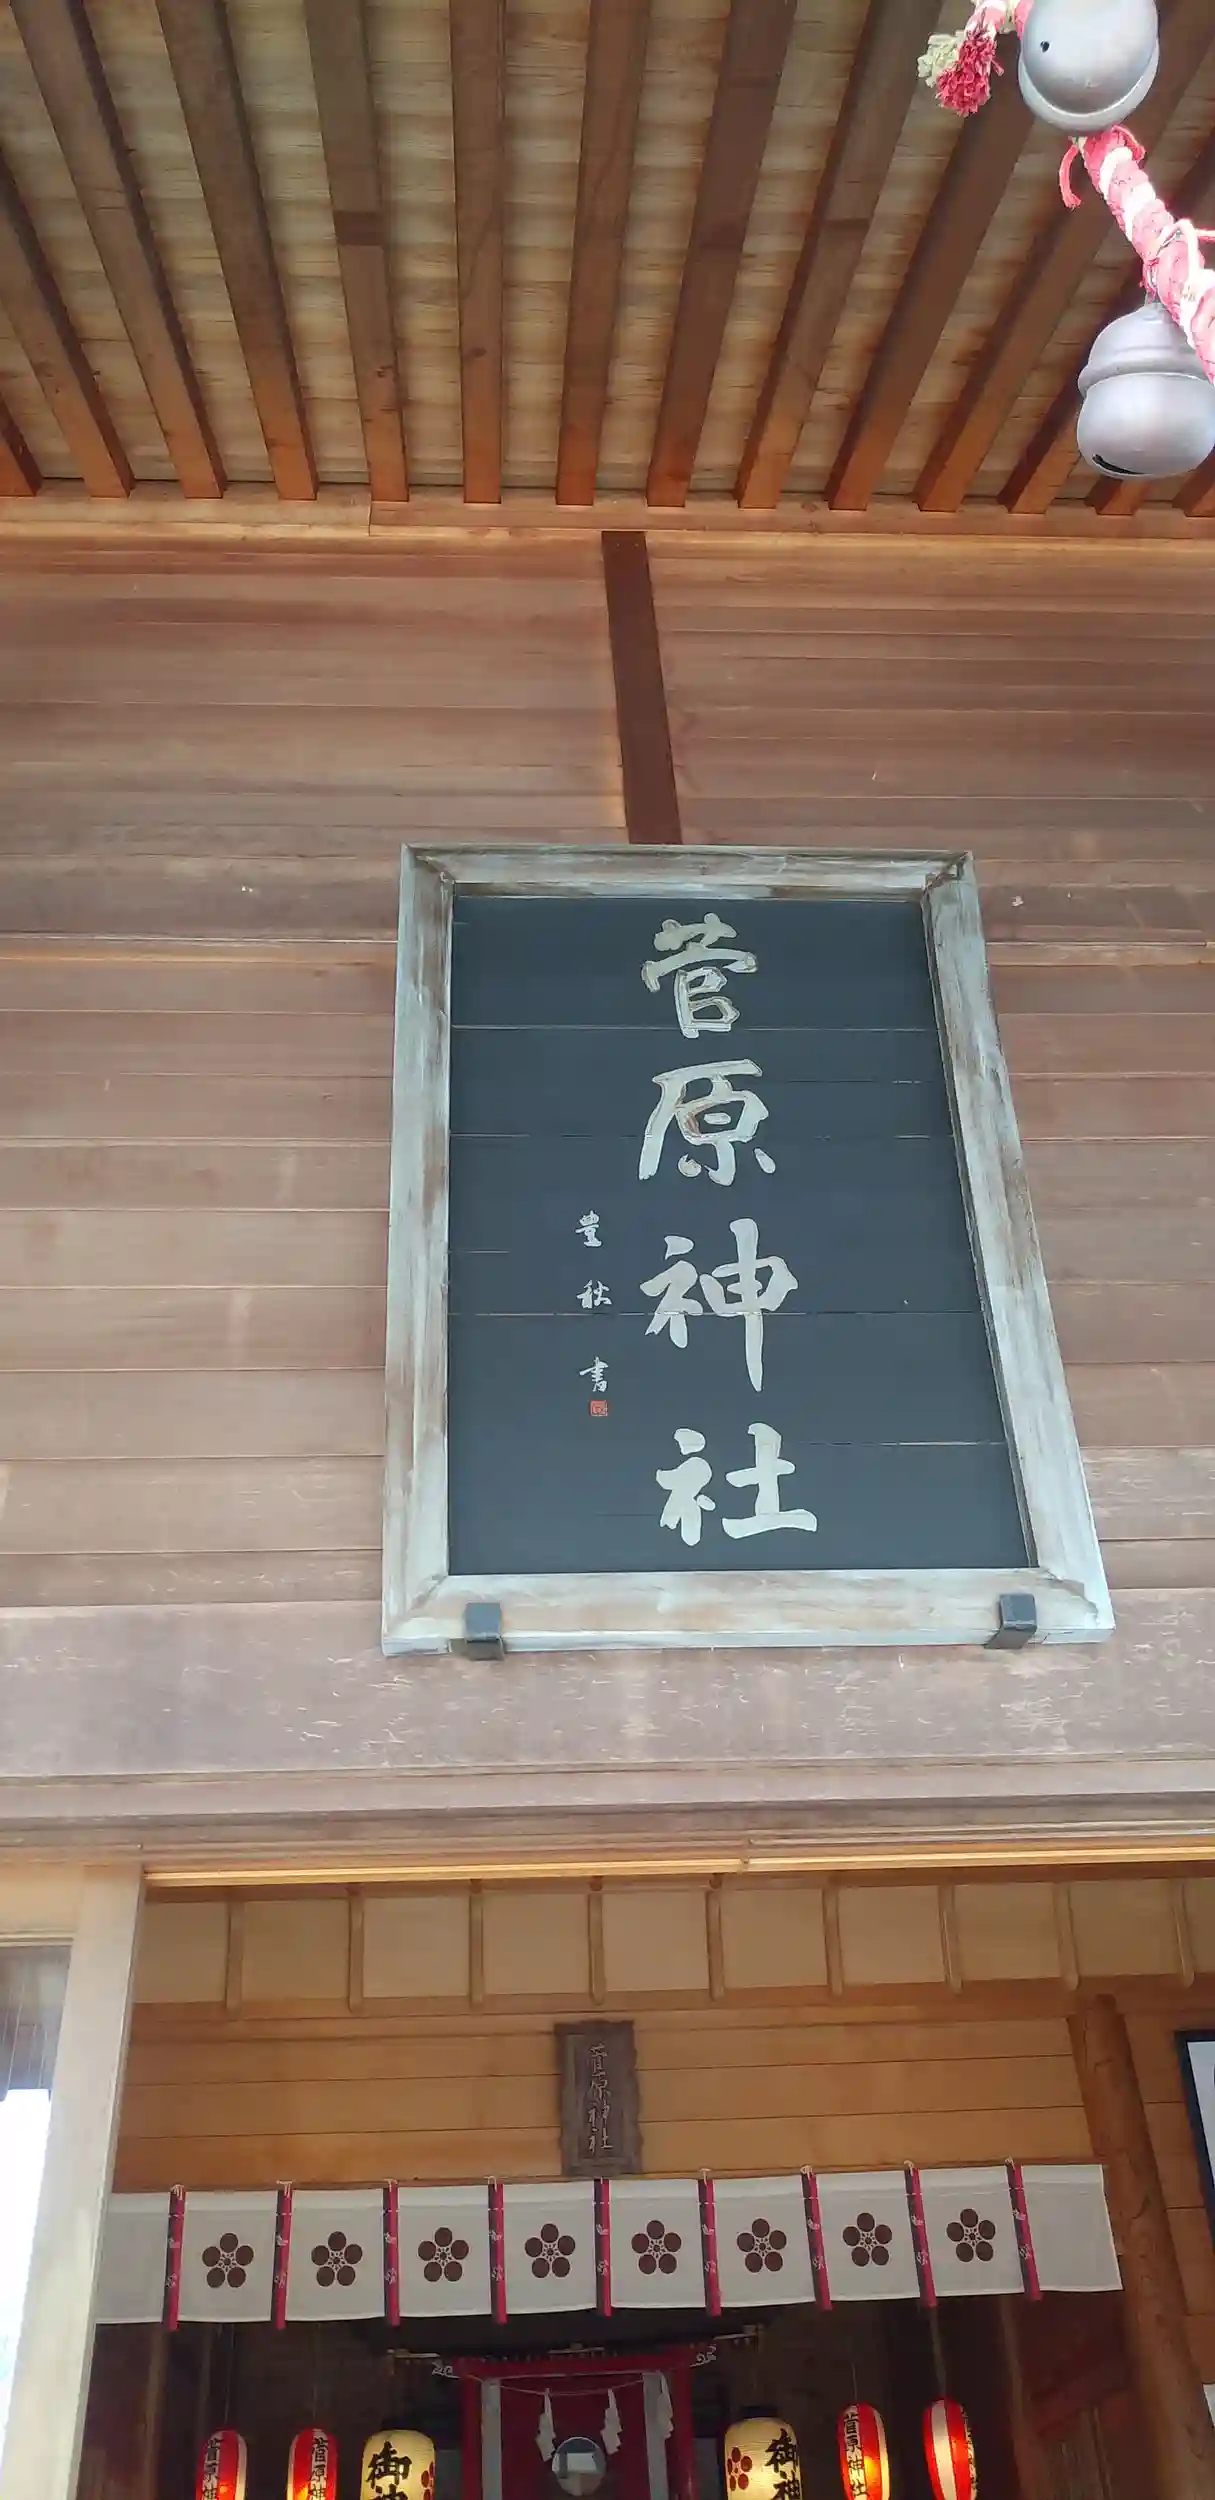 菅原神社
豊秋書
菅原神社
菅原神
菅原神
御神
御神
菅原神社